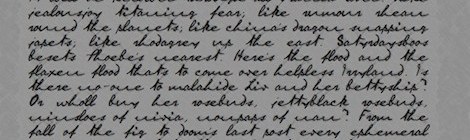 jealousjoy titaning fear; like rumour rhean
round the planets; like china's dragon snapping
japets; like rhodagrey up the east. Satyrdaysboost
besets Phoebe's nearest. Here's the flood and the
flaxen flood that's to come over helpless Irryland. Is
there no-one to malahide Liv and her bettyship?
Or who'll buy her rosebuds, jettyblack rosebuds,
ninsloes of nivia, nonpaps of nan? From the
fall of the fig to doom's last post every ephemeral